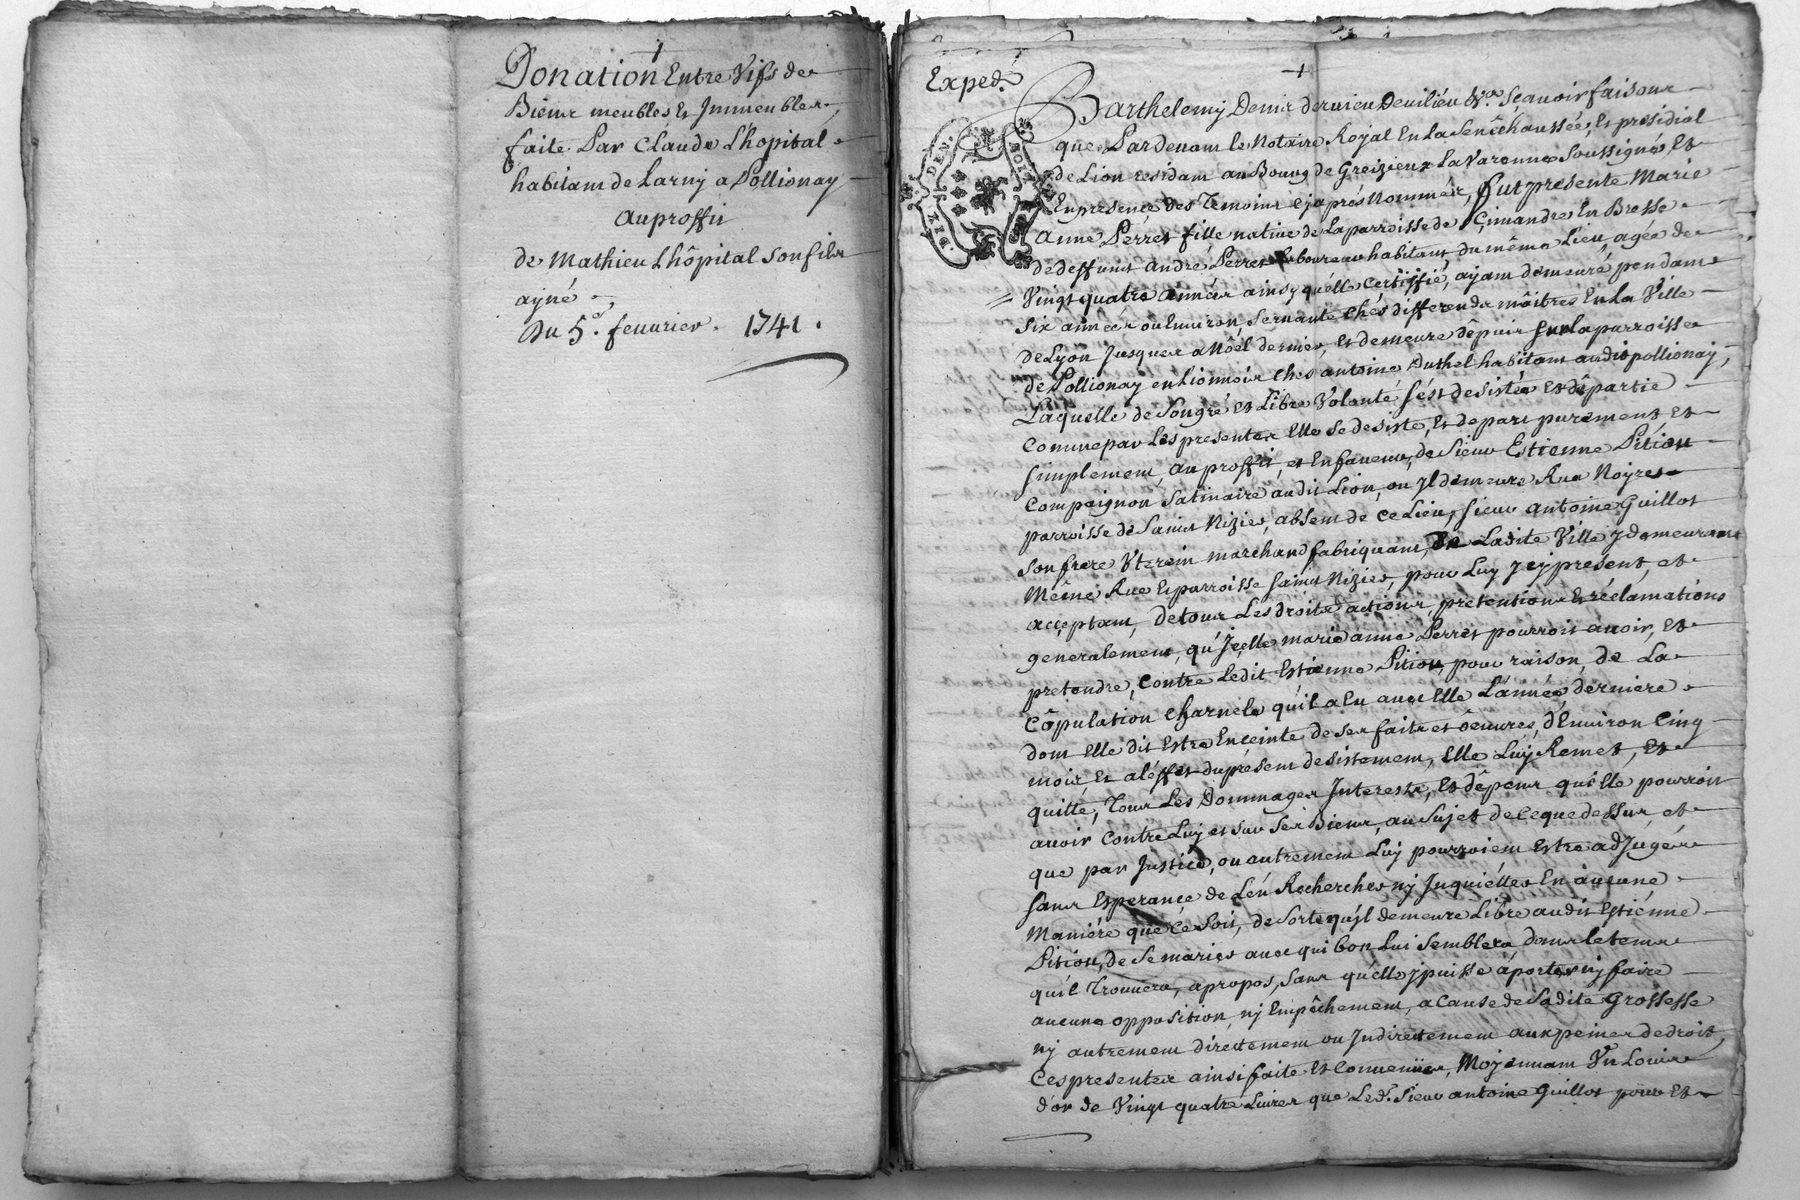 Donation Entre Vifs de
Biens meubles Et Immeubles
faite Par Claude Lhopital
habitant de Larny a Pollionay
au proffit
de Mathieu Lhôpital son fils
ayné
Du 5e. feuvrier. 1741.
Exped.
Barthelemy Denis dervieu Devilieu &a. Sçavoir faisons
que Pardevant le Notaire Royal En la Senêchaussée, Et presidial
de Lion residant au Bourg de Greizieu La Varenne Soussigné, Et
En presence des Temoins cy aprés Nommés, fut presente Marie
anne Perret fille native de La parroisse de Cimandre En Bresse
de deffunt André Perret Laboureur habitant du même Lieu, agée de
Vingt quatre années ainsy quélle Certiffié, ayant demeuré pendant
Six années ou Environ, Servante chés differends maîtres En La Ville
de Lyon Jusques a Nôel dernier, Et demeure dêpuis sur la parroisse
de Pollionay en Lionnois Chés antoine Duthel habitant audit pollionay,
Laquelle de Son gré et Libre Volonté s'ést desistée et dêpartie
Comme par Les presentes Elle se desiste, Et depart purement, et
simplement, au proffit, et En faveur, de Sieur Estienne Pition
Compaignon Satinaire audit Lion, ou Jl demeure Rue Noyre
parroisse de Saint Nizier, absent de Ce Lieu, sieur antoine Guillot
son frere Uterin marchand fabriquant, de Ladite Ville y demeurant
Même Rue Et parroisse saint Nizier, pour Luy Jcy present, et
acçeptant, de tous Les droits actions, pretentions Et réclamations
generalement, qu'Jçelle marie anne Perret pourroit avoir, Et
pretendre, Contre Ledit Estienne Pition, pour raison, de La
Côpulation Charnele qu'il a Eu avec Elle L'année derniere
dont Elle dit Estre Enceinte de ses faits et oeuvres, d'Environ Cinq
mois, Et aléffet du present desistement, Elle Luy Remet, Et
quitte, Tous Les Dommages Interests, Et dêpens qu'elle pourroit
avoir Contre Luy et sur Ses Biens, au Sujet de Ce que dessus, et
que par Justice, ou autrement Luy pourroient Estre adJugés
sans Esperance de L'én Rechercher ny Inquiéller En aucune
Maniére que Ce Soit, de Sorte qu'il demeure Libre audit Estiénne
Pition, de Se marier avec qui bon Lui Semblera dans le tems
qu'il Trouvera, apropos, sans qu'elle y puisse áporter ny faire
aucune opposition, ny Empêchement, a Cause de Sadite Grossesse
ny autrement directement ou Jndirectement aux peines de droit,
Ces presentes ainsi faite Et Convenües, Moyennant Un Louis
d'or de Vingt quatre Livres que Led. Sieur antoine Guillot pour Et